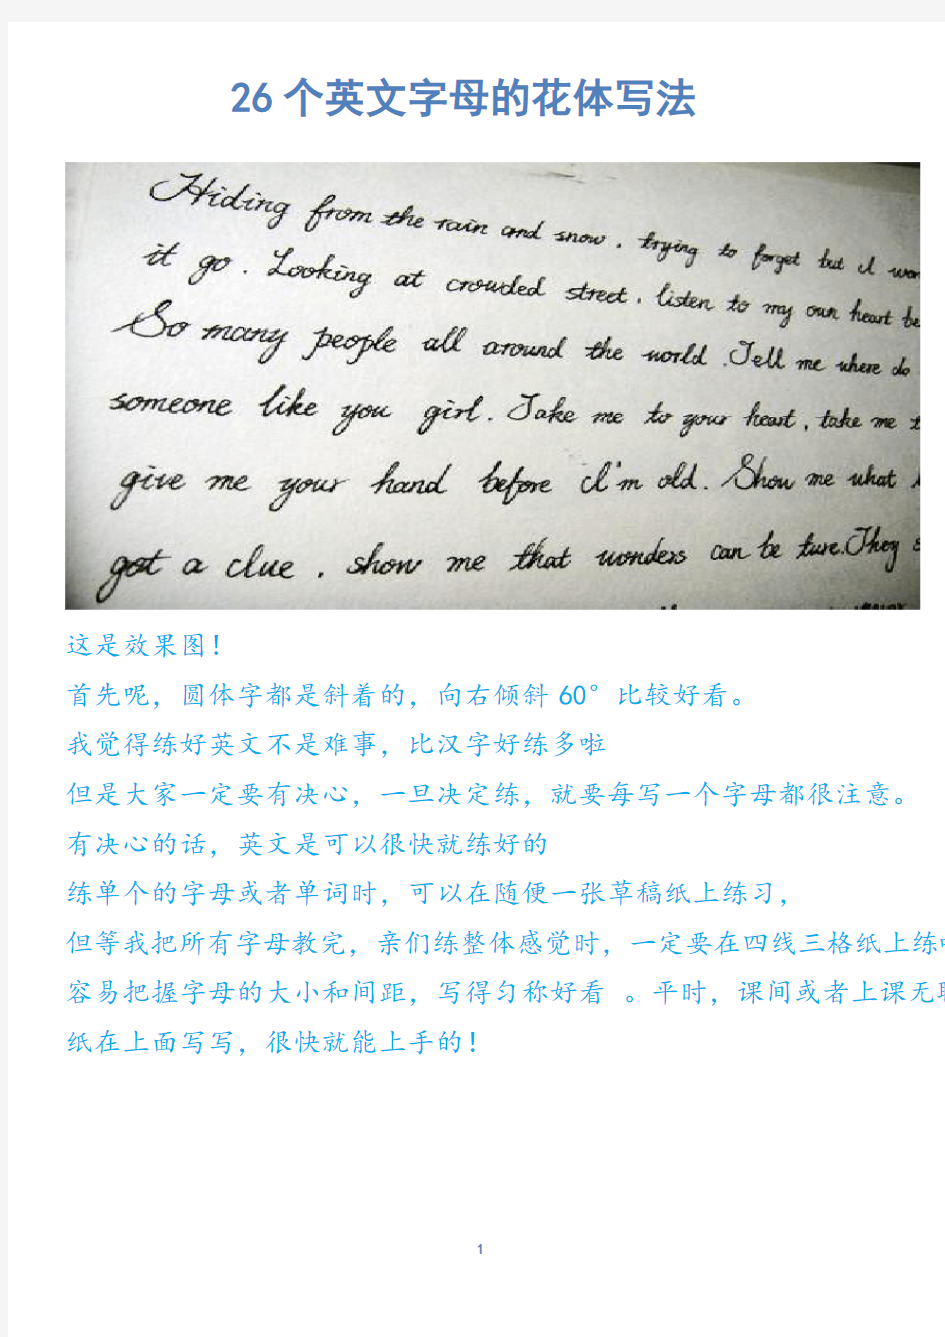 26个英文字母的花体写法
Hiding from the rain and snow, trying to forget but I won
it go. Looking at crowded street, listen to my own heart be
So many people all around the world. Tell me where do
someone like you girl. Take me to your heart, take me t
give me your hand before I'm old. Show me what
got a clue, show me that wonders can be ture. They s
这是效果图！
首先呢，圆体字都是斜着的，向右倾斜60°比较好看。
我觉得练好英文不是难事，比汉字好练多啦
但是大家一定要有决心，一旦决定练，就要每写一个字母都很注意。
有决心的话，英文是可以很快就练好的
练单个的字母或者单词时，可以在随便一张草稿纸上练习，
但等我把所有字母教完，亲们练整体感觉时，一定要在四线三格纸上练
容易把握字母的大小和间距，写得匀称好看 。平时，课间或者上课无
纸在上面写写，很快就能上手的！
1